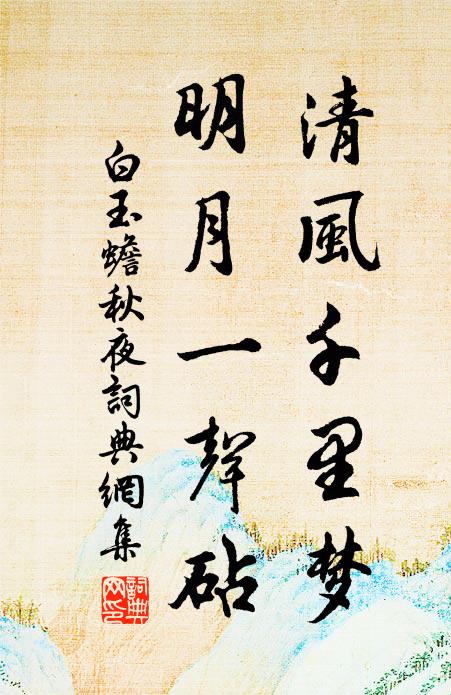 清風千里梦
明月一聲砧
白玉蟾秋夜詞典網集
詞典网印